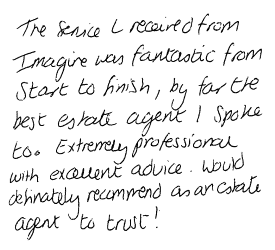 The Service I received from
Imagine was fantastic from
Start to finish, by far the
best estate agent I spoke
to. Extremely professional
with excellent advice. Would
definately recommend as an estate
agent to trust!